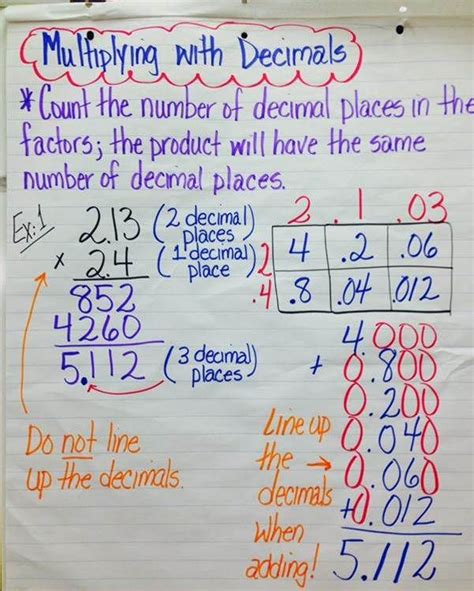 Multiplying with Decimals
*Count the number of decimal places in the
factors; the product will have the same
number of decimal places.
Ex:1
2.13 (2 decimal places)
x 2.4 (1 decimal place)
852
4260
5.112 (3 decimal places)
Do not line
up the decimals.
2 .1 .03
2 4 .2 .06
.4 .8 .04 .012
4.000
+ 0.800
0.200
0.040
0.060
+0.012
5.112
Line up
the →
decimals
when
adding!